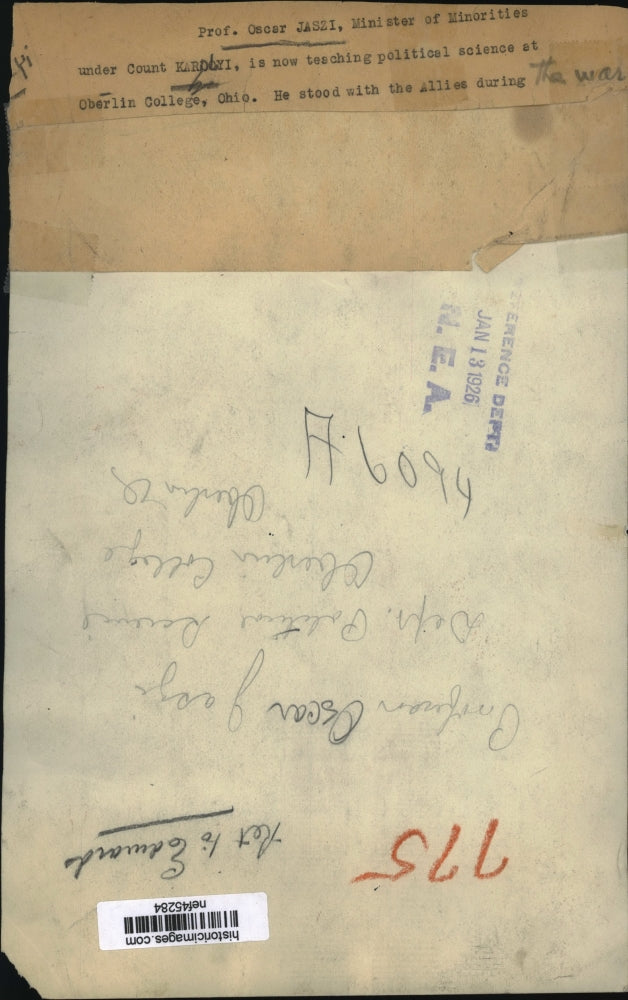 Prof. Oscar JASZI, Minister of Minorities
under Count KAROLYI, is now teaching political science at
Oberlin College, Ohio. He stood with the Allies during the war
REFERENCE DEPT.
JAN 13 1926
N. E. A.
4609 H
Professor Oscar Jaszi
Dept. Political Science
Oberlin College
Oberlin O
775
Ret to Edwards
historicimages.com
nef45284